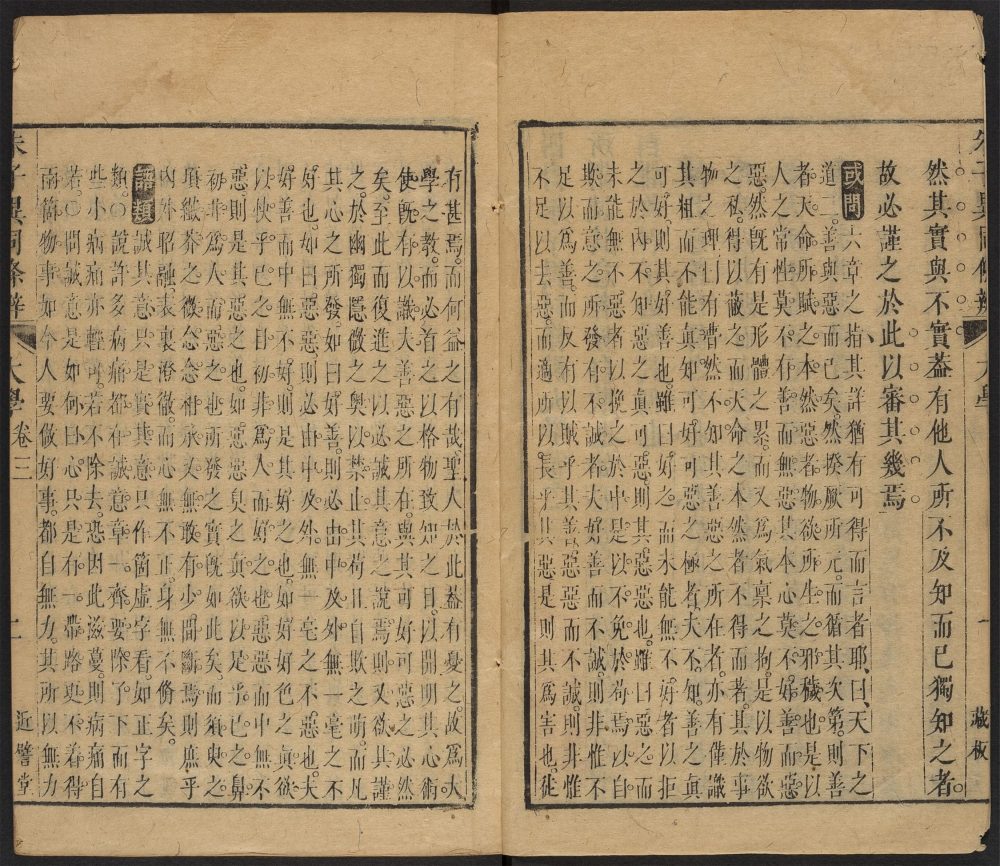 朱子異同條辨 大學 一 藏板
然其實與不實蓋有他人所不及知而已獨知之者。
故必謹之於此以審其幾焉
或問六章之指其詳猶有可得而言者耶曰天下之
道二善與惡而已矣然揆厥所元而循其次第則善
者天命所賦之本然惡者物欲所生之邪穢也是以
人之常性莫不有善而無惡其本心莫不好善而惡
惡然既有是形體之累而又爲氣稟之拘是以物欲
之私得以蔽之而天命之本然者不得而著其於事
物之理固有瞢然不知其善惡之所在者亦有僅識
其粗而不能真知其可好可惡之極者夫不知善之真
可好則其好善也雖曰好之而未能無不好者以拒
之於內不知惡之真可惡則其惡惡也雖曰惡之而
未能無不惡者以挽之於中是以不免於苟焉以自
欺而意之所發有不誠者夫好善而不誠則非惟不
足以爲善而反有以賊乎其善惡惡而不誠則非惟
不足以去惡而適所以長乎其惡是則其爲害也徒
有甚焉而何益之有哉聖人於此蓋有憂之故爲大
學之教而必首之以格物致知之目以開明其心術
使既有以識夫善惡之所在與其可好可惡之必然
矣至此而復進之以必誠其意之說焉則又欲其謹
之於幽獨隱微之奧以禁止其苟且自欺之萌而凡
其心之所發如曰好善則必由中及外無一毫之不
好也如曰惡惡則必由中及外無一毫之不惡也夫
好善而中無不好則是其好之也如好好色之真欲
以快乎已之目初非爲人而好之也惡惡而中無不
惡則是其惡之也如惡惡臭之真欲以足乎已之鼻
初非爲人而惡之也所發之實既如此矣而須臾之
頃纖芥之微念念相承又無敢有少間斷焉則庶乎
內外昭融表裏澄徹而心無不正身無不脩矣
語類誠其意只是實其意只作箇虛字看如正字之
類○說許多病痛都在誠意章一齊要除了下面有
些小病痛亦輕可若不除去恐因此滋蔓則病痛自
若○問誠意是如何曰心只是有一帶路更不着得
兩箇物事如今人要做好事都自無力其所以無力
朱子異同條辨 大學卷三 二 近譬堂